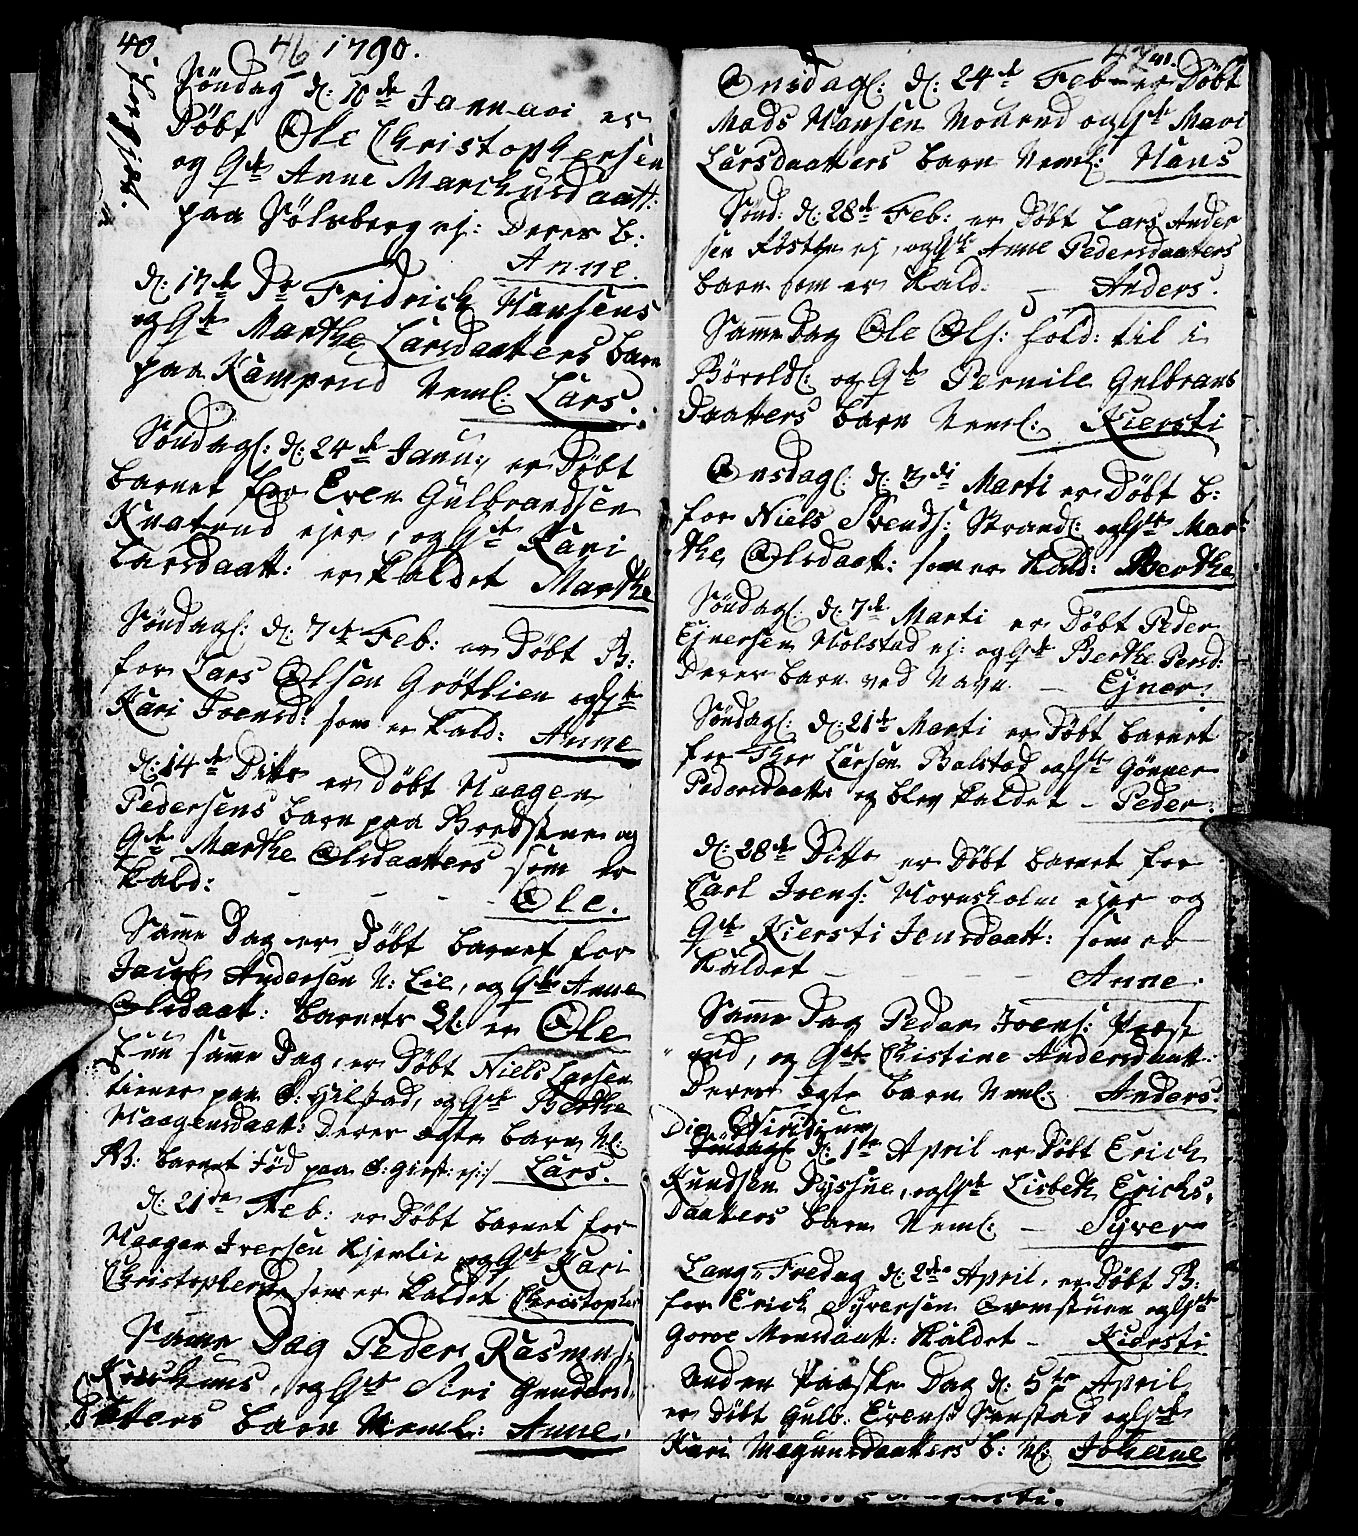 40.
46 1790.
Søndag d: 10de Januari er
Døbt Ole Christophersen
og Gst: Anne Marchusdaatt:
paa Sølvberg ej: Deres B:
Anne.
d: 17de Do Fridrich Hansens
og Gst Marthe Larsdaatters barn
paa Kamprud Neml: Lars.
Søndag: d: 24de Janu: er Døbt
barnet for Even Gulbrandsen
Knatrud ejer, og Gst Kari
Larsdaatt: er kaldet Marthe
Søndag: d: 7de Feb: er Døbt B:
for Lars Olsen Grøtlien og Gst
Kari Joensd: som er kald: Anne
d: 14de Ditto er Døbt Haagen
Pedersens barn paa og
Gst Marthe Olsdaatters som er
kald: - - - Ole.
Samme Dag er Døbt barnet for
Jacob Andersen N: Lie, og Gst Anne
Olsdaatt: barnets N: er Ole
samme Dag, er Døbt Niels Larsen
tiener paa S: Hilstad, og Gst Berthe
Haagensdaatt: Deres ægte barn N:
NB: barnet Fød paa S: ej: Lars.
d: 21de Feb: er Døbt barnet for
Haagen Iversen Kjemlie og Gst Kari
Christophersd: som er kaldet Christopher
Samme Dag Peder Rasmus:
og Gst Siri Gunders
Datters barn Neml: Anne.
47 41.
Onsdag: d: 24de Feb: er Døbt
Mads Hansen og Gst Mari
Larsdaatters barn Neml: Hans
Sønd: d: 28de Feb: er Døbt Lars Ander
sen ej, og Gst Anne Pedersdaatters
barn som er kald. - Anders.
Samme Dag Ole Ols: hold: til i
og Gst Pernile Gulbrans
Daatters barn Neml: Kiersti
Onsdag: d: 3di Marti er Døbt B:
for Niels Svends: Strand: og Gst Mar-
the Olsdaatt: som er kald: Berthe
Søndag: d: 7de Marti er Døbt Peder
Ejnersen Holstad ej: og Gst Berthe
Deres barn ved Navn - Ejner.
Søndag: d: 21de Marti er Døbt barnet
for Thor Larsen Balstad og Gst Gønner
Pedersdaatt: og blev kaldet - Peder.
d: 28de Ditto er Døbt barnet for
Carl Joens: Hornsholm ejer og
Gst Kiersti Jensdaatt: som er
kaldet - - - - Anne.
Samme Dag Peder Joens:
rud, og Gst Christine Andersdaatt:
Deres ægte barn Neml: Anders.
Die Viridium
Søndag d: 1te April er Døbt Erich
Knudsen og Gst Lisbeth Erichs
Daatters barn Neml: - Syver
Lang Fredag d: 2den April, er Døbt B:
for Erich Syversen og Gst
Goroe Monsdaatt: kaldet - Kiersti
Anden Paaske Dag d: 5te April
er Døbt Gulb: Evens: og Gst
Kari Magnusdaatters b: N: Johanne